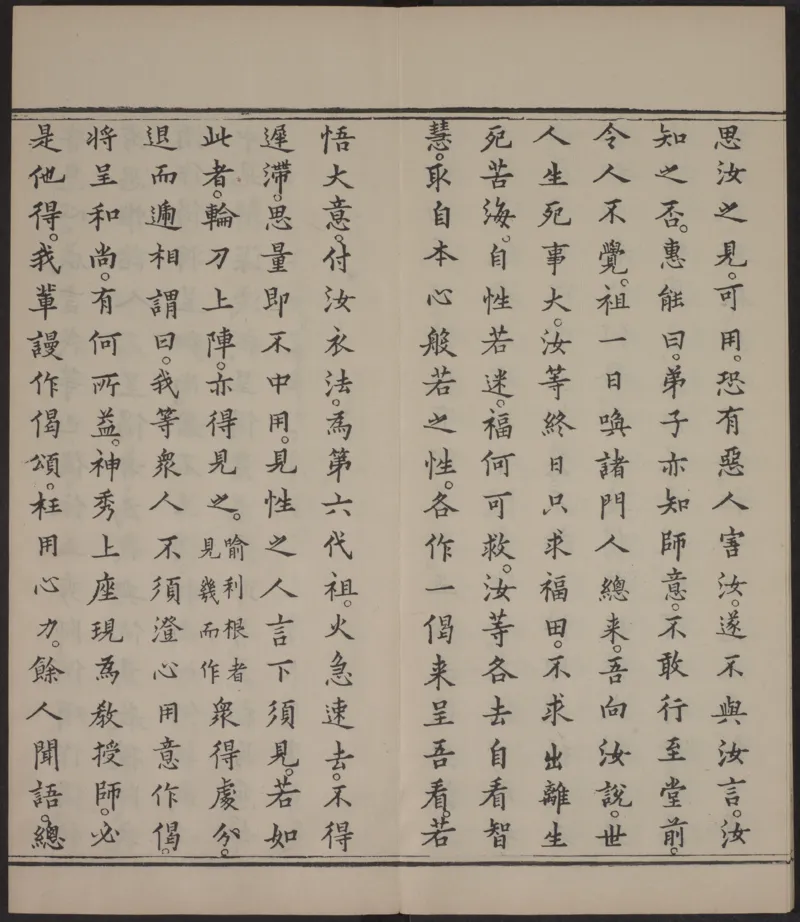 思汝之見。可用。恐有惡人害汝。遂不與汝言。汝
知之否。惠能曰。弟子亦知師意。不敢行至堂前。
令人不覺。祖一日喚諸門人總來。吾向汝說。世
人生死事大。汝等終日只求福田。不求出離生
死苦海。自性若迷。福何可救。汝等各去自看智
慧。取自本心般若之性。各作一偈來呈吾看。若
悟大意。付汝衣法。為第六代祖。火急速去。不得
遲滯。思量即不中用。見性之人言下須見。若如
此者。輪刀上陣。亦得見之。喻利根者見幾而作眾得處分。
退而遞相謂曰。我等眾人不須澄心用意作偈。
將呈和尚。有何所益。神秀上座現為教授師。必
是他得。我輩謾作偈頌。枉用心力。餘人聞語。總